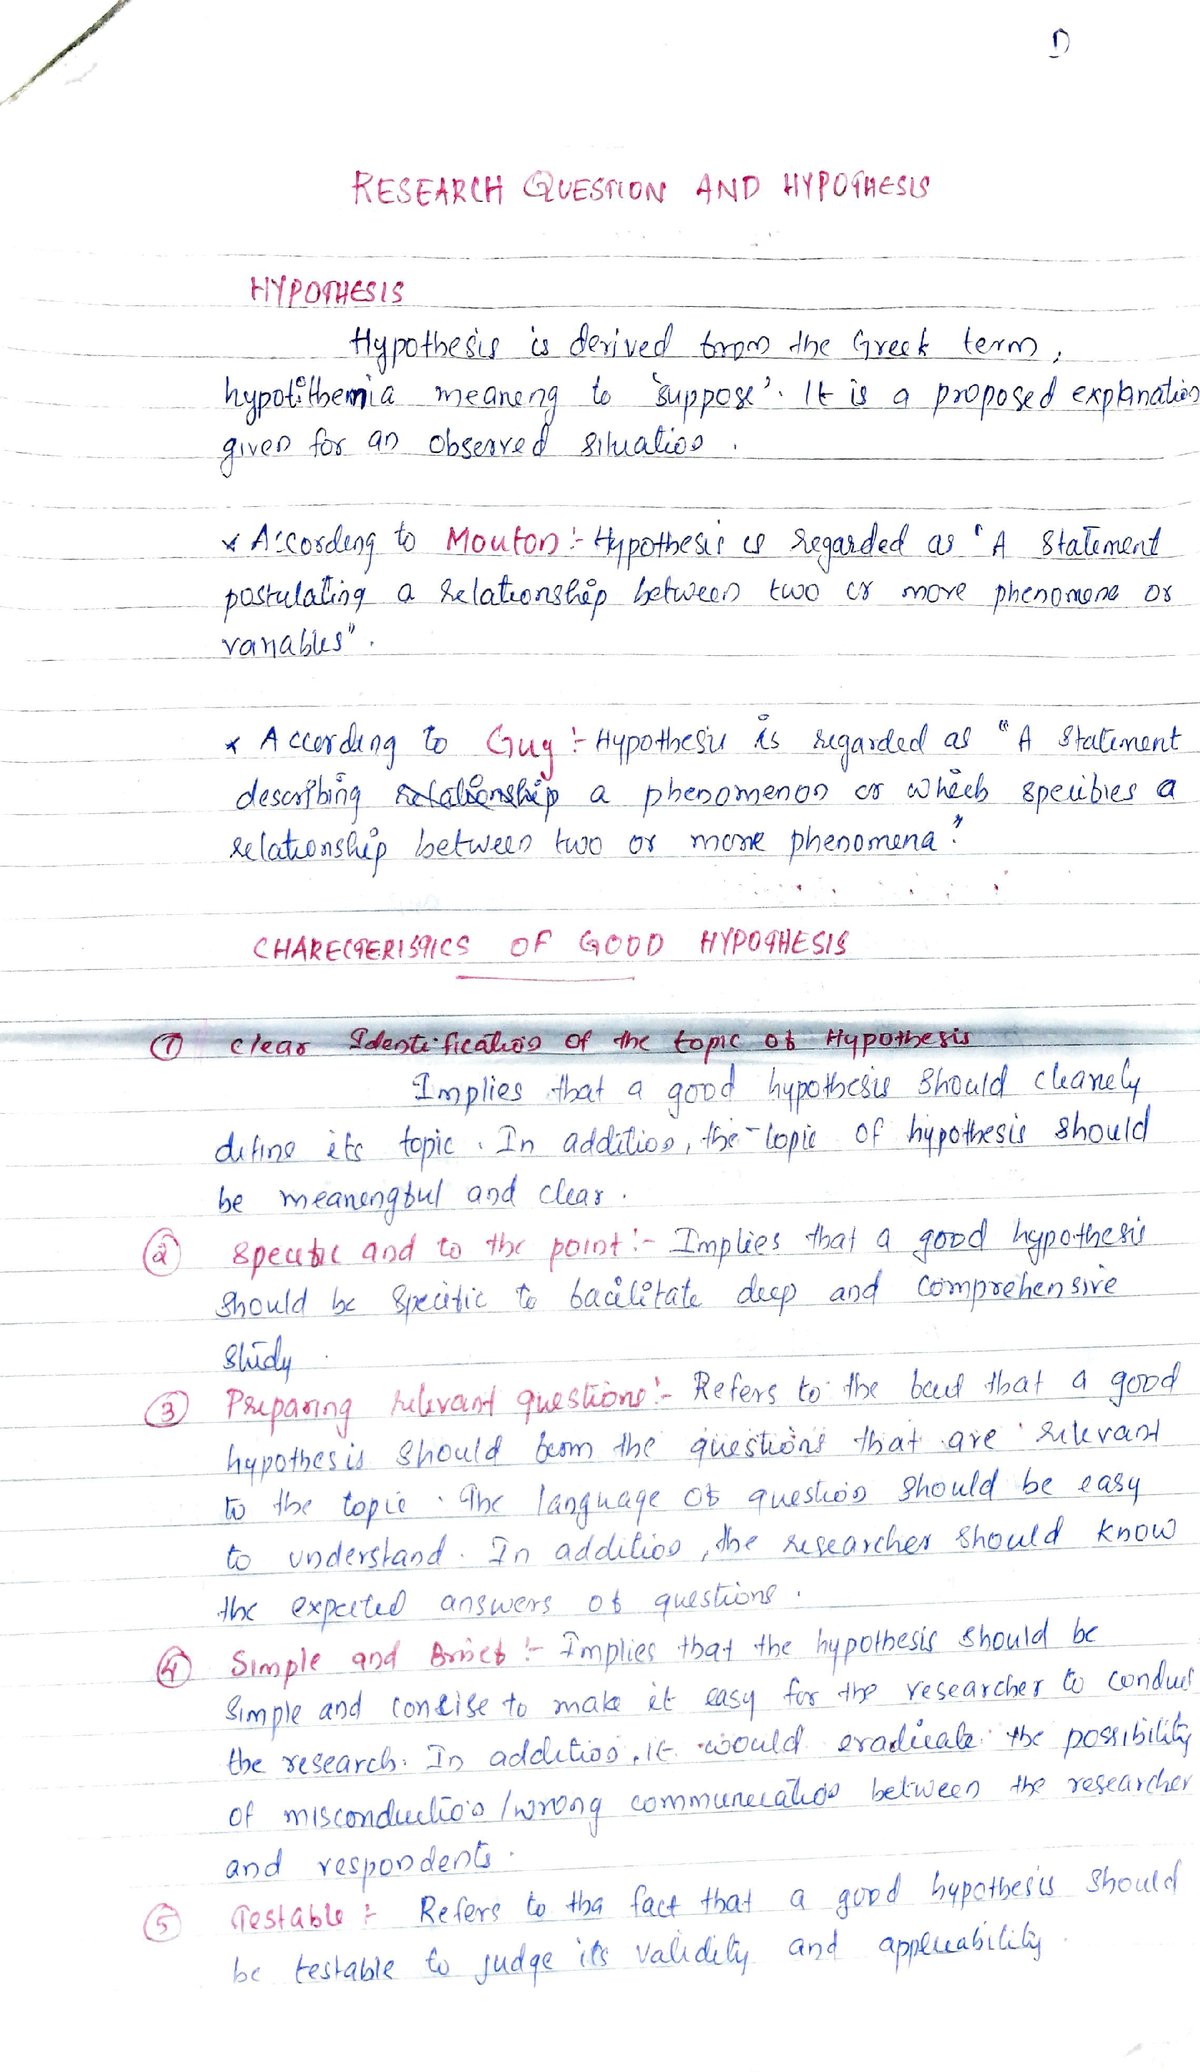 1)
RESEARCH QUESTION AND HYPOTHESIS
HYPOTHESIS
Hypothesis is derived from the Greek term,
hypotithemia meaning to 'suppose'. It is a proposed explanation
given for an observed situation.
* According to Mouton :- Hypothesis is regarded as "A Statement
postulating a relationship between two or more phenomena or
variables".
* According to Guy :- Hypothesis is regarded as "A Statement
describing relationship a phenomenon or which specifies a
relationship between two or more phenomena."
CHARECTERISTICS OF GOOD HYPOTHESIS
① Clear Identification of the topic of Hypothesis
Implies that a good hypothesis should clearely
define its topic. In addition, the topic of hypothesis should
be meaningful and clear.
② Specific and to the point :- Implies that a good hypothesis
should be specific to facilitate deep and comprehensive
study.
③ Preparing relevant questions :- Refers to the fact that a good
hypothesis should form the questions that are relevant
to the topic. The language of question should be easy
to understand. In addition, the researcher should know
the expected answers of questions.
④ Simple and Brief :- Implies that the hypothesis should be
simple and concise to make it easy for the researcher to conduct
the research. In addition, it would eradicate the possibility
of misconduction / wrong communication between the researcher
and respondents.
⑤ Testable :- Refers to tha fact that a good hypothesis should
be testable to judge its validity and applicability.